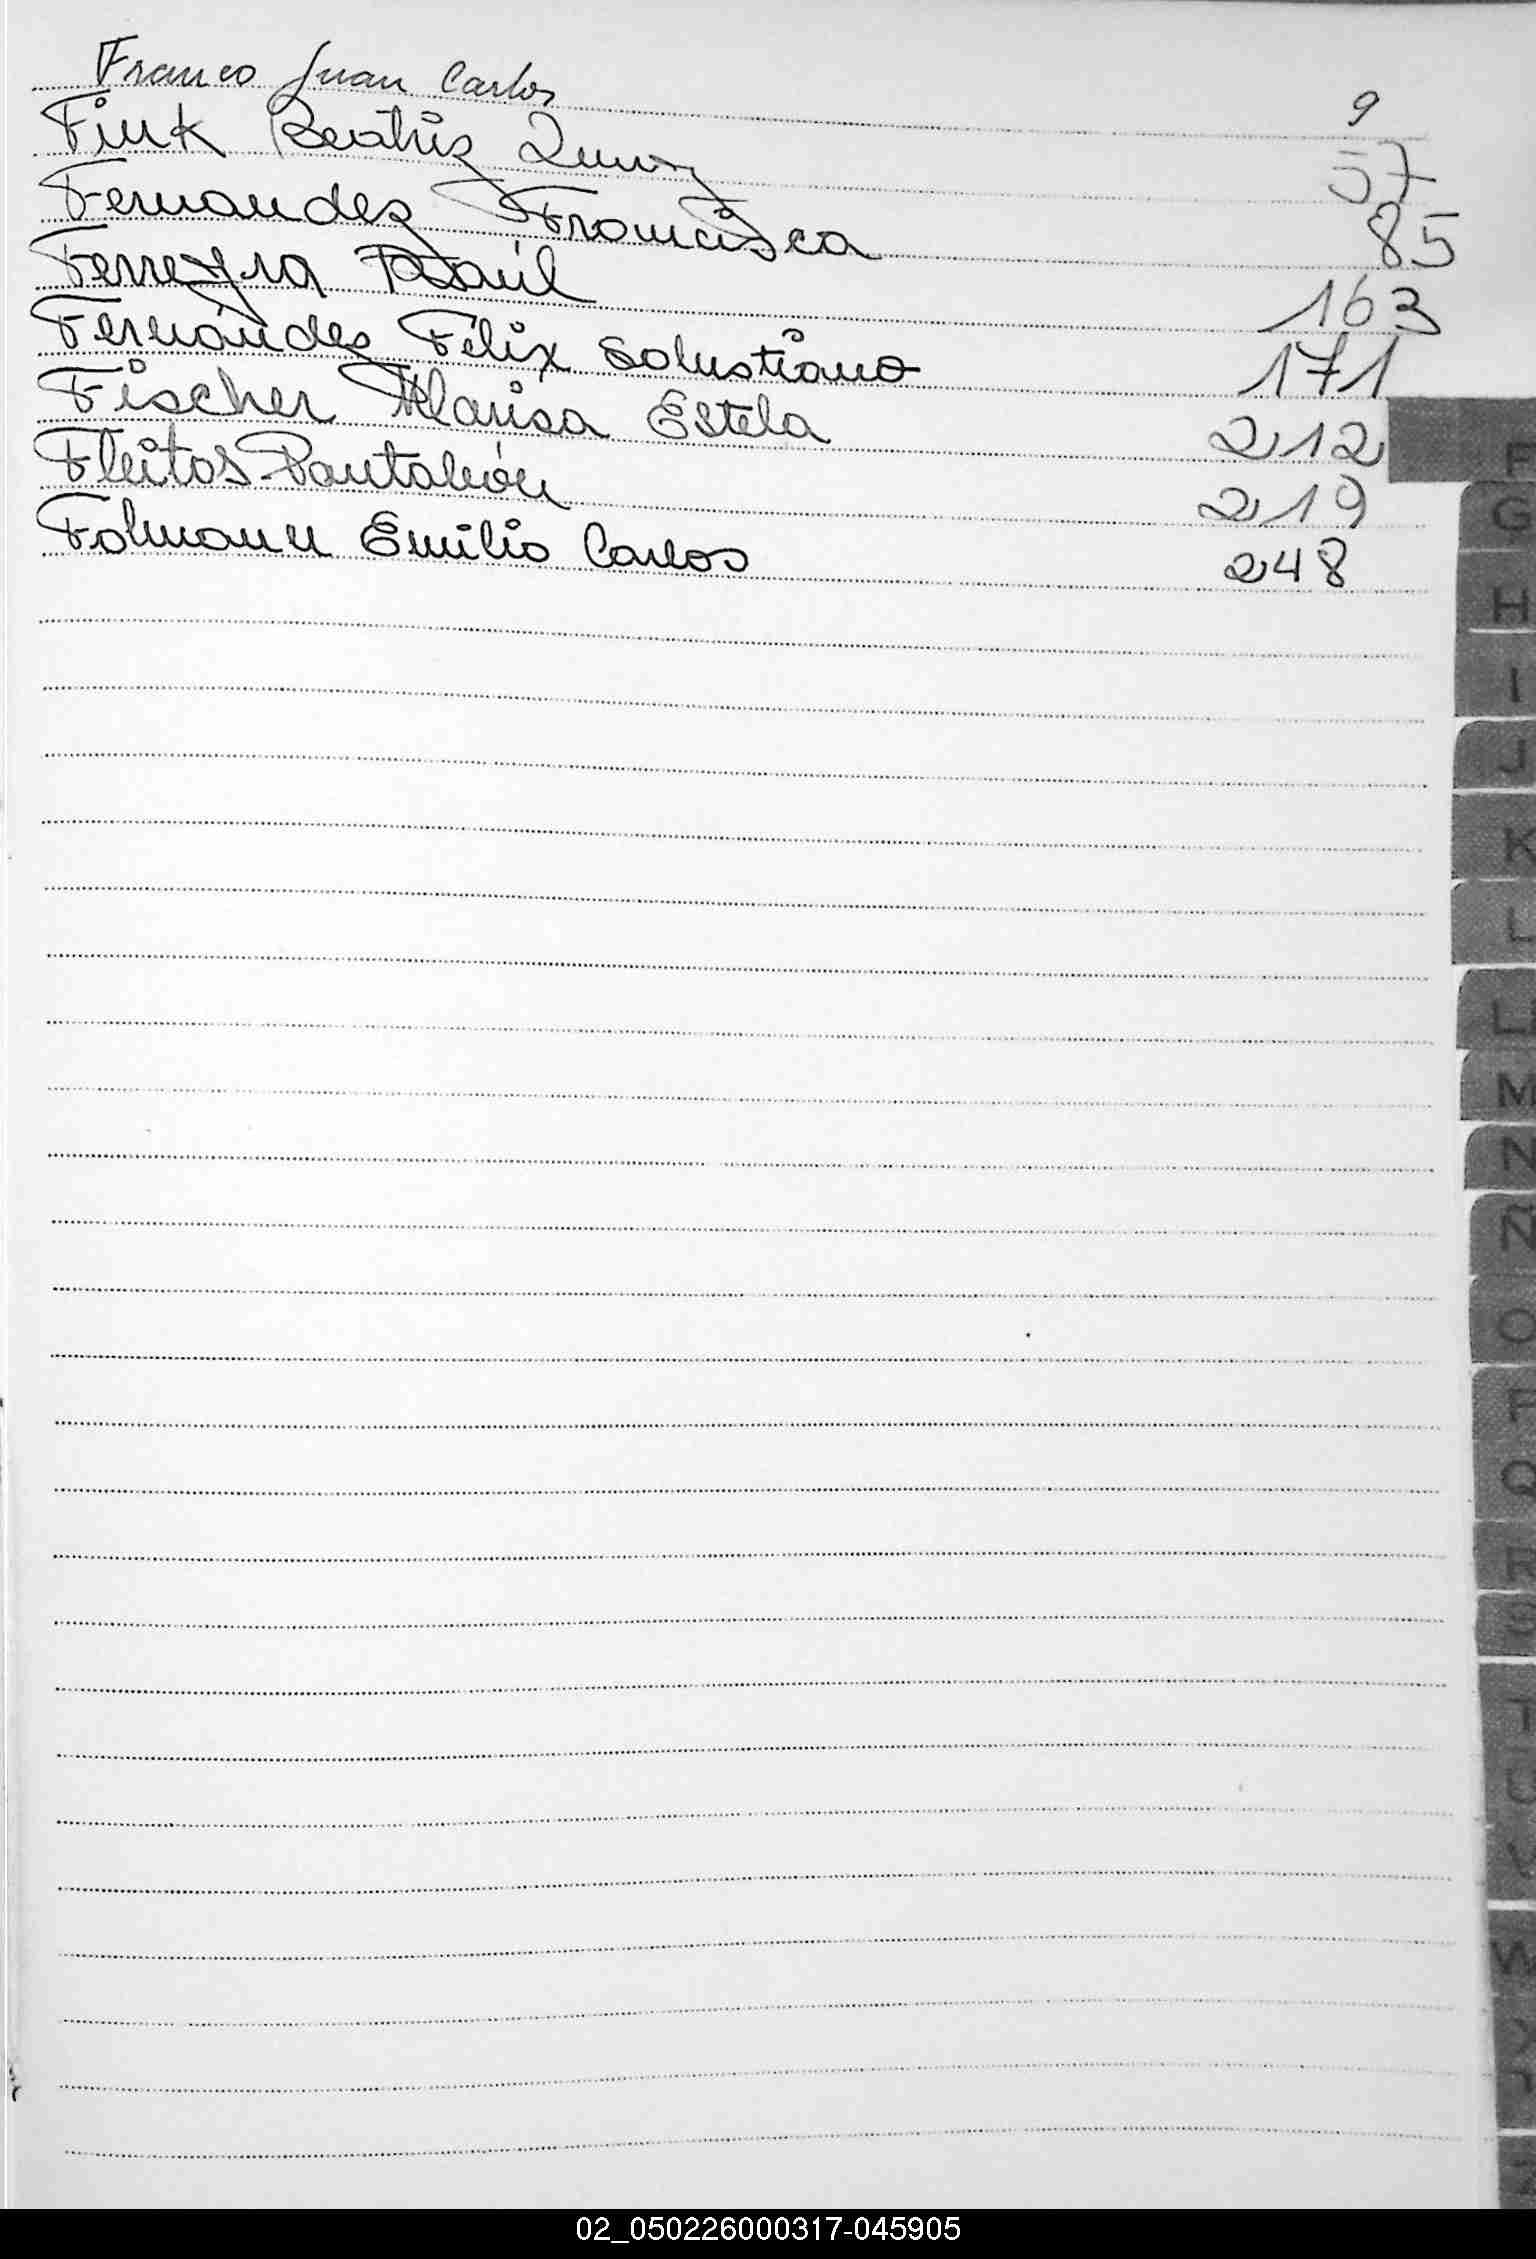 Franco Juan Carlos 9
Fink Beatriz 57
Fernandez Francisca 85
Ferreyra Raúl 163
Fernández Félix Salustiano 171
Fischer Marisa Estela 212
Fleitos Pantaleón 219
Folmann Emilio Carlos 248
F
G
H
I
J
K
L
LL
M
N
Ñ
O
P
Q
R
S
T
U
V
W
Z
02_050226000317-045905